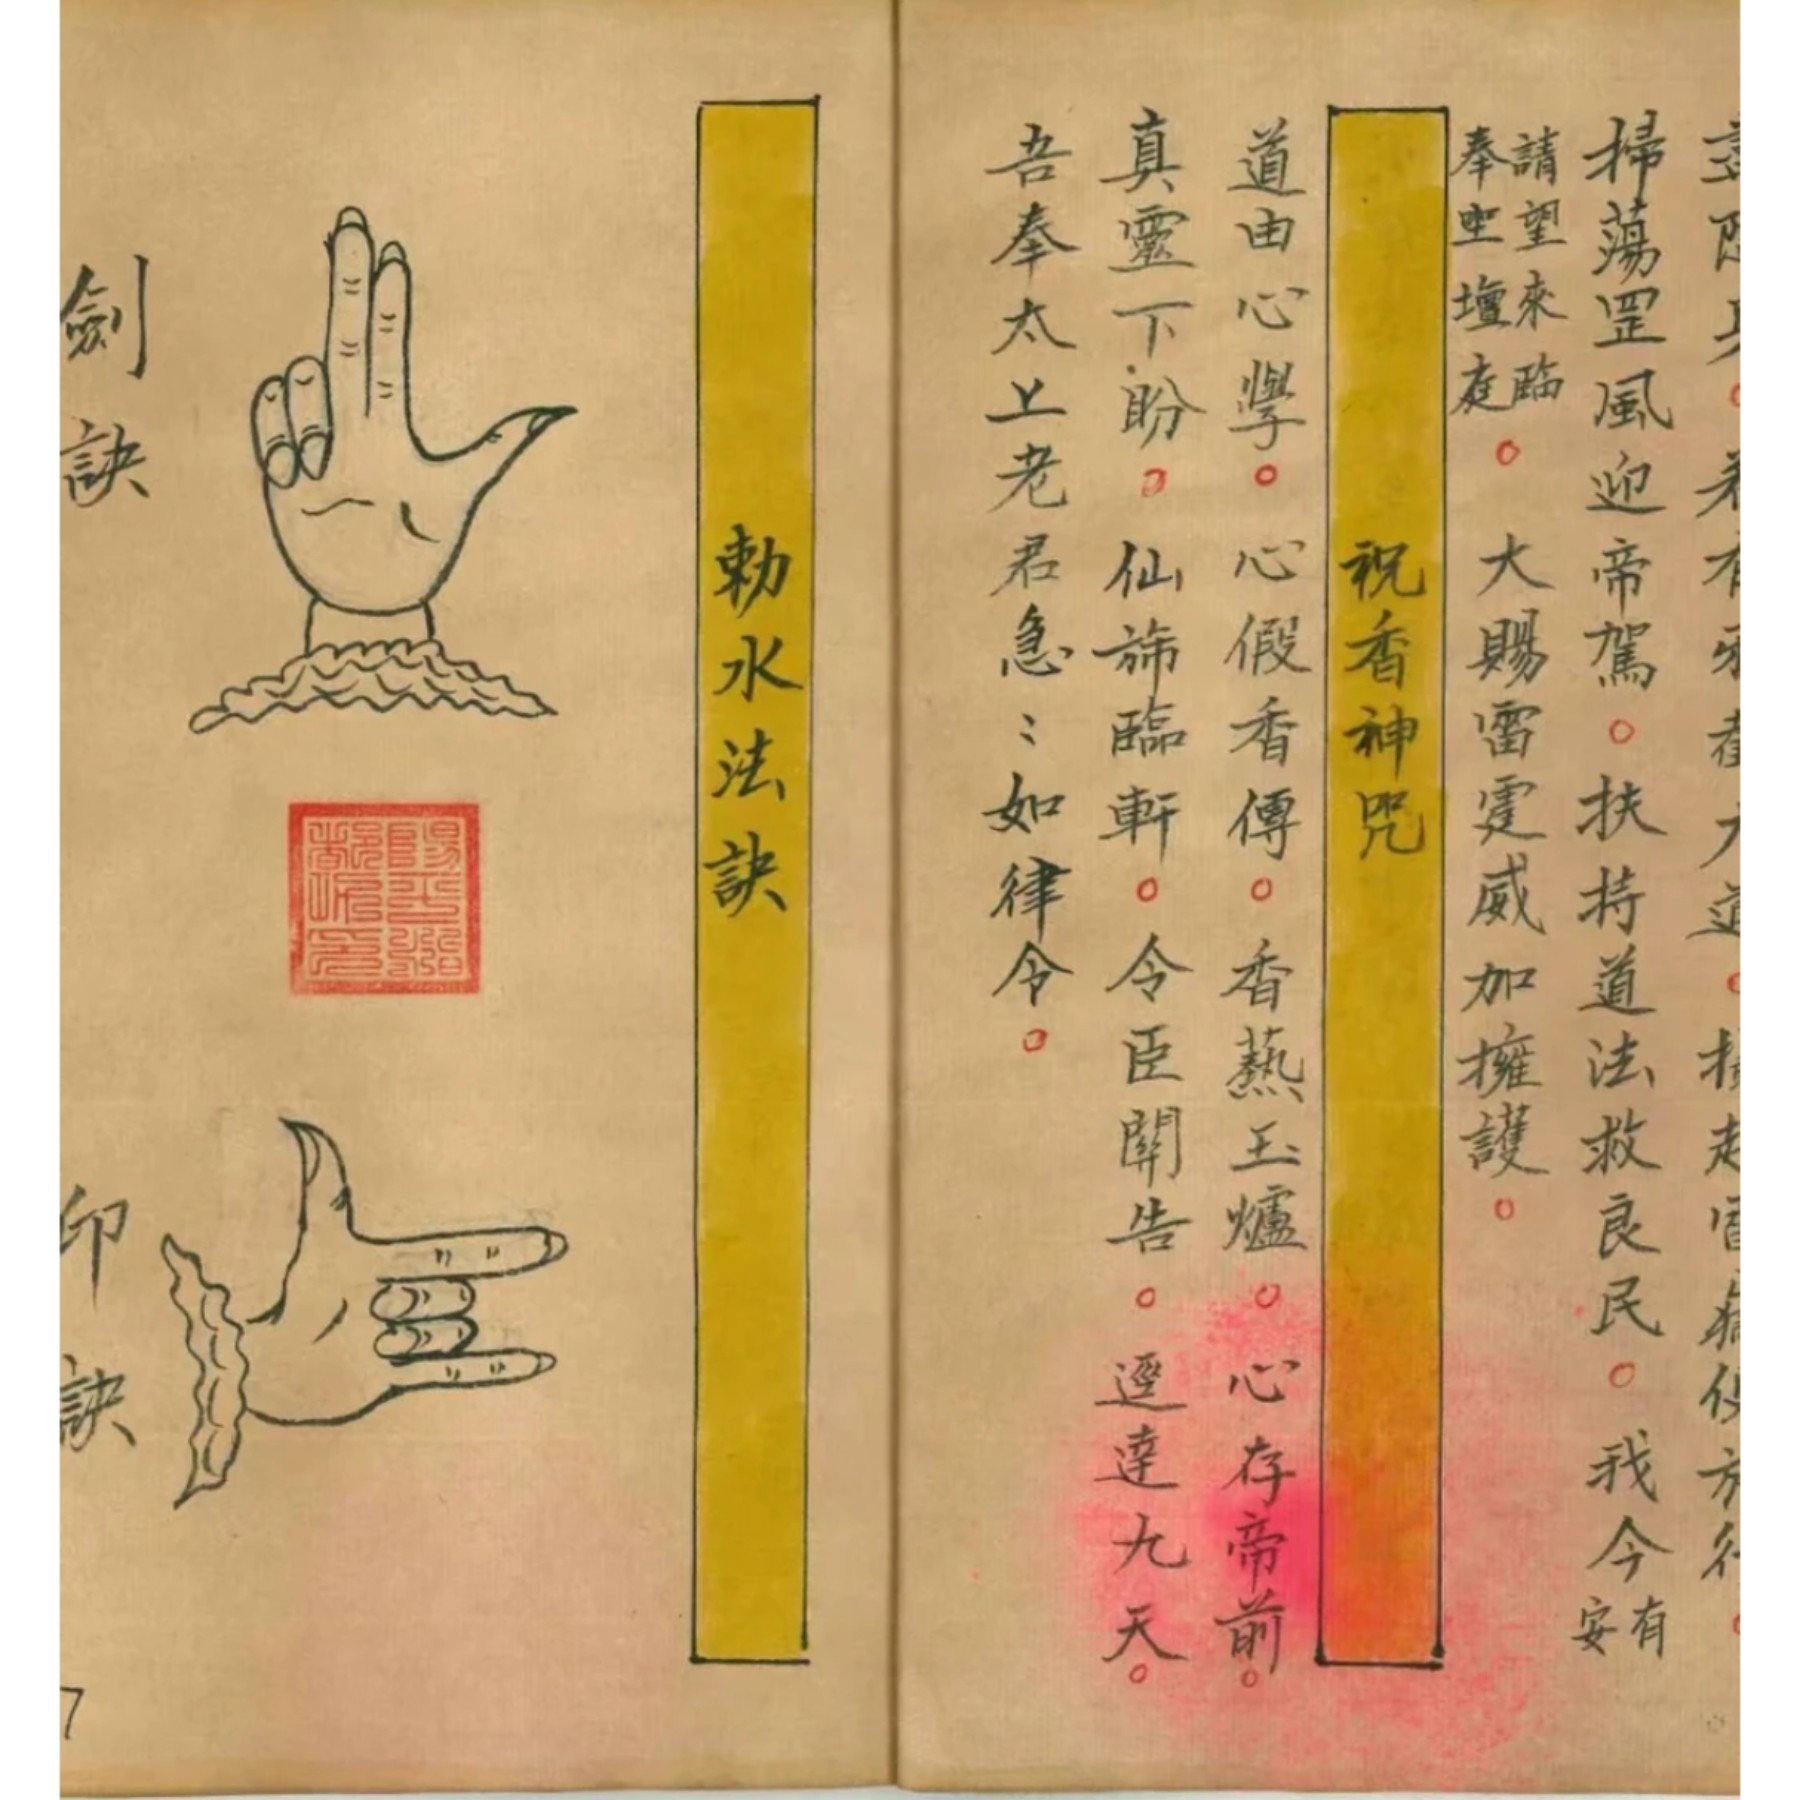 掃蕩罡風迎帝駕。扶持道法救良民。我今有安
請望來臨
奉聖壇庭。大賜雷霆威加擁護。
祝香神咒
道由心學。心假香傳。香爇玉爐。心存帝前。
真靈下盼。仙旆臨軒。令臣關告。逕達九天。
吾奉太上老君急〻如律令。
勅水法訣
劍訣
印訣